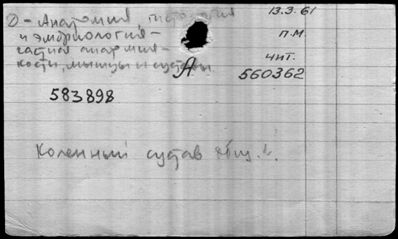 О - Анатомия, гистология 13.3.61
и эмбриология - п.м.
частная анатомия - чит.
кости, мышцы и суставы А 560362
583898
Коленный сустав